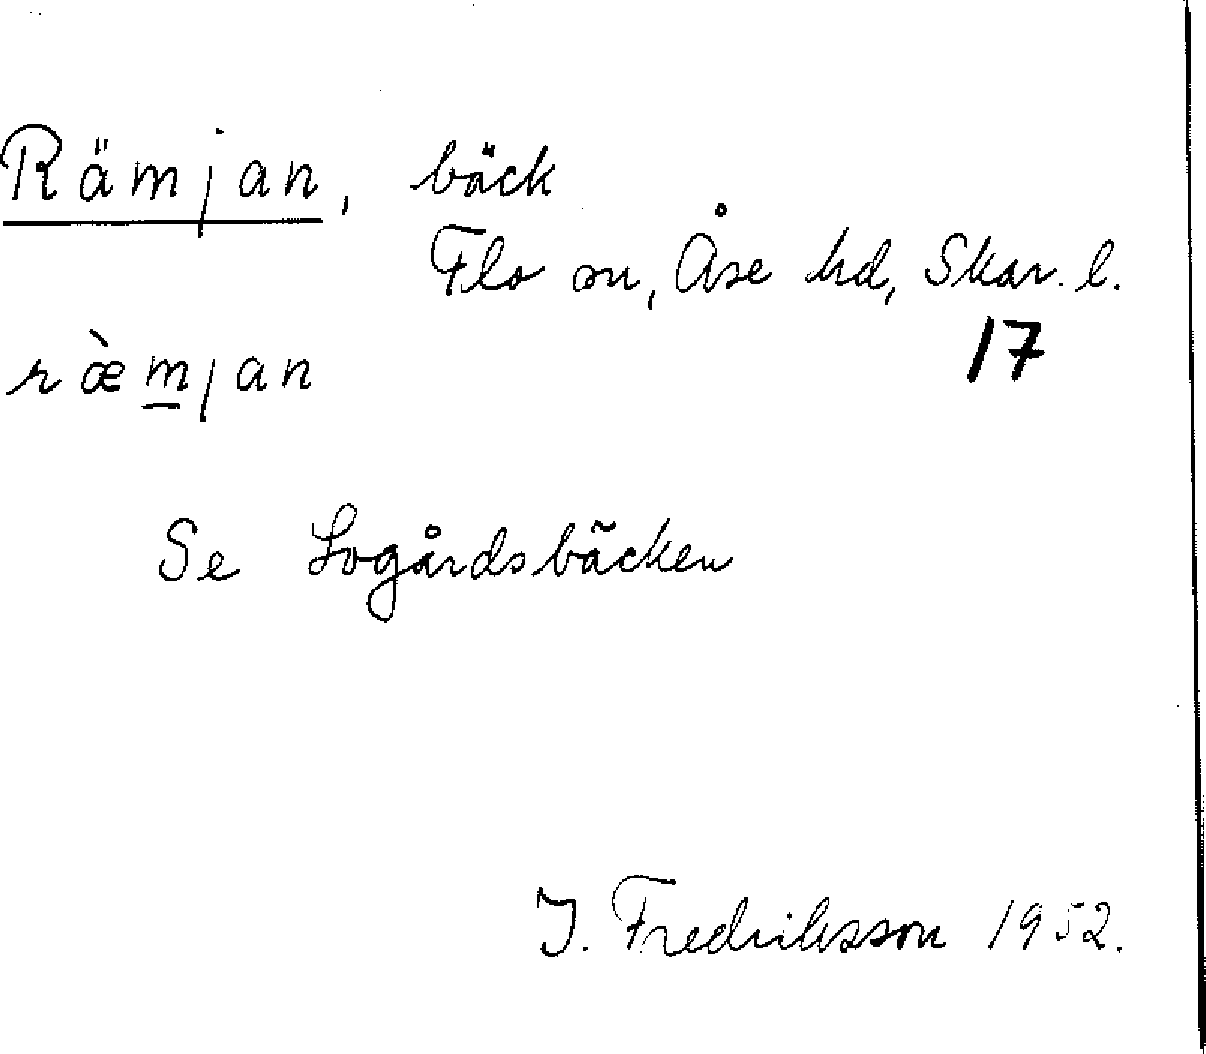 Rämjan, bäck
Flo sn, Åse hd, Skar. l.
17
ræ̀m̲jan
Se Logårdsbäcken
I. Fredriksson 1952.